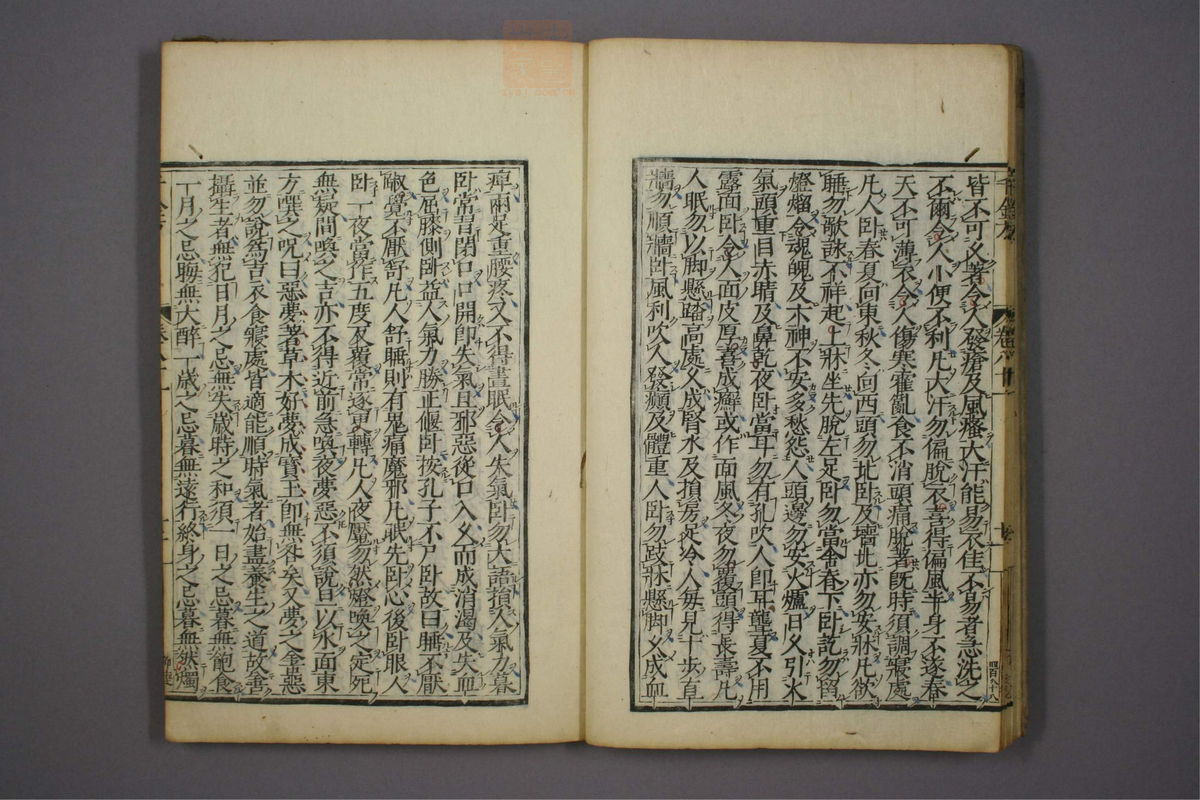 皆不可久著令人發瘡及風瘙大汗能易衣佳不易者急洗之
不爾令人小便不利凡大汗勿偏脫衣喜得偏風半身不遂春
天不可薄衣令人傷寒霍亂食不消頭痛脫著既時須調寢處
凡人臥春夏向東秋冬向西頭勿北臥及墻北亦勿安牀凡欲
睡勿歌詠不祥起上牀坐先脫左足臥勿當舍脊下臥訖勿留
燈燭令魂魄及六神不安多愁怨人頭邊勿安火爐日久引火
氣頭重目赤睛及鼻乾夜臥當耳勿有孔吹人即耳聾夏不用
露面臥令人面皮厚喜成癬或作面風冬夜勿覆頭得長壽凡
人眠勿以脚懸踏高處久成腎水及損房足冷人每見十步直
墻勿順墻臥風利吹人發癲及體重人臥勿跂牀懸脚久成血
痺兩足重腰疼又不得晝眠令人失氣臥勿大語損人氣力暮
臥常習閉口口開即失氣且邪惡從口入久而成消渴及失血
色屈膝側臥益人氣力勝正偃臥按孔子不尸臥故曰睡不厭
踧覺不厭舒凡人舒睡則有鬼痛魔邪凡眠先臥心後臥眼人
臥一夜當作五度反覆常逐更轉凡人夜魘勿然燈喚之定死
無疑闇喚之吉亦不得近前急喚夜夢惡不須說旦以水面東
方噀之呪曰惡夢著草木好夢成寶玉即無咎矣又夢之善惡
並勿說爲吉衣食寢處皆適能順時氣者始盡養生之道故善
攝生者無犯日月之忌無失歲時之和須一日之忌暮無飽食
一月之忌晦無大醉一歲之忌暮無遠行終身之忌暮無然燭